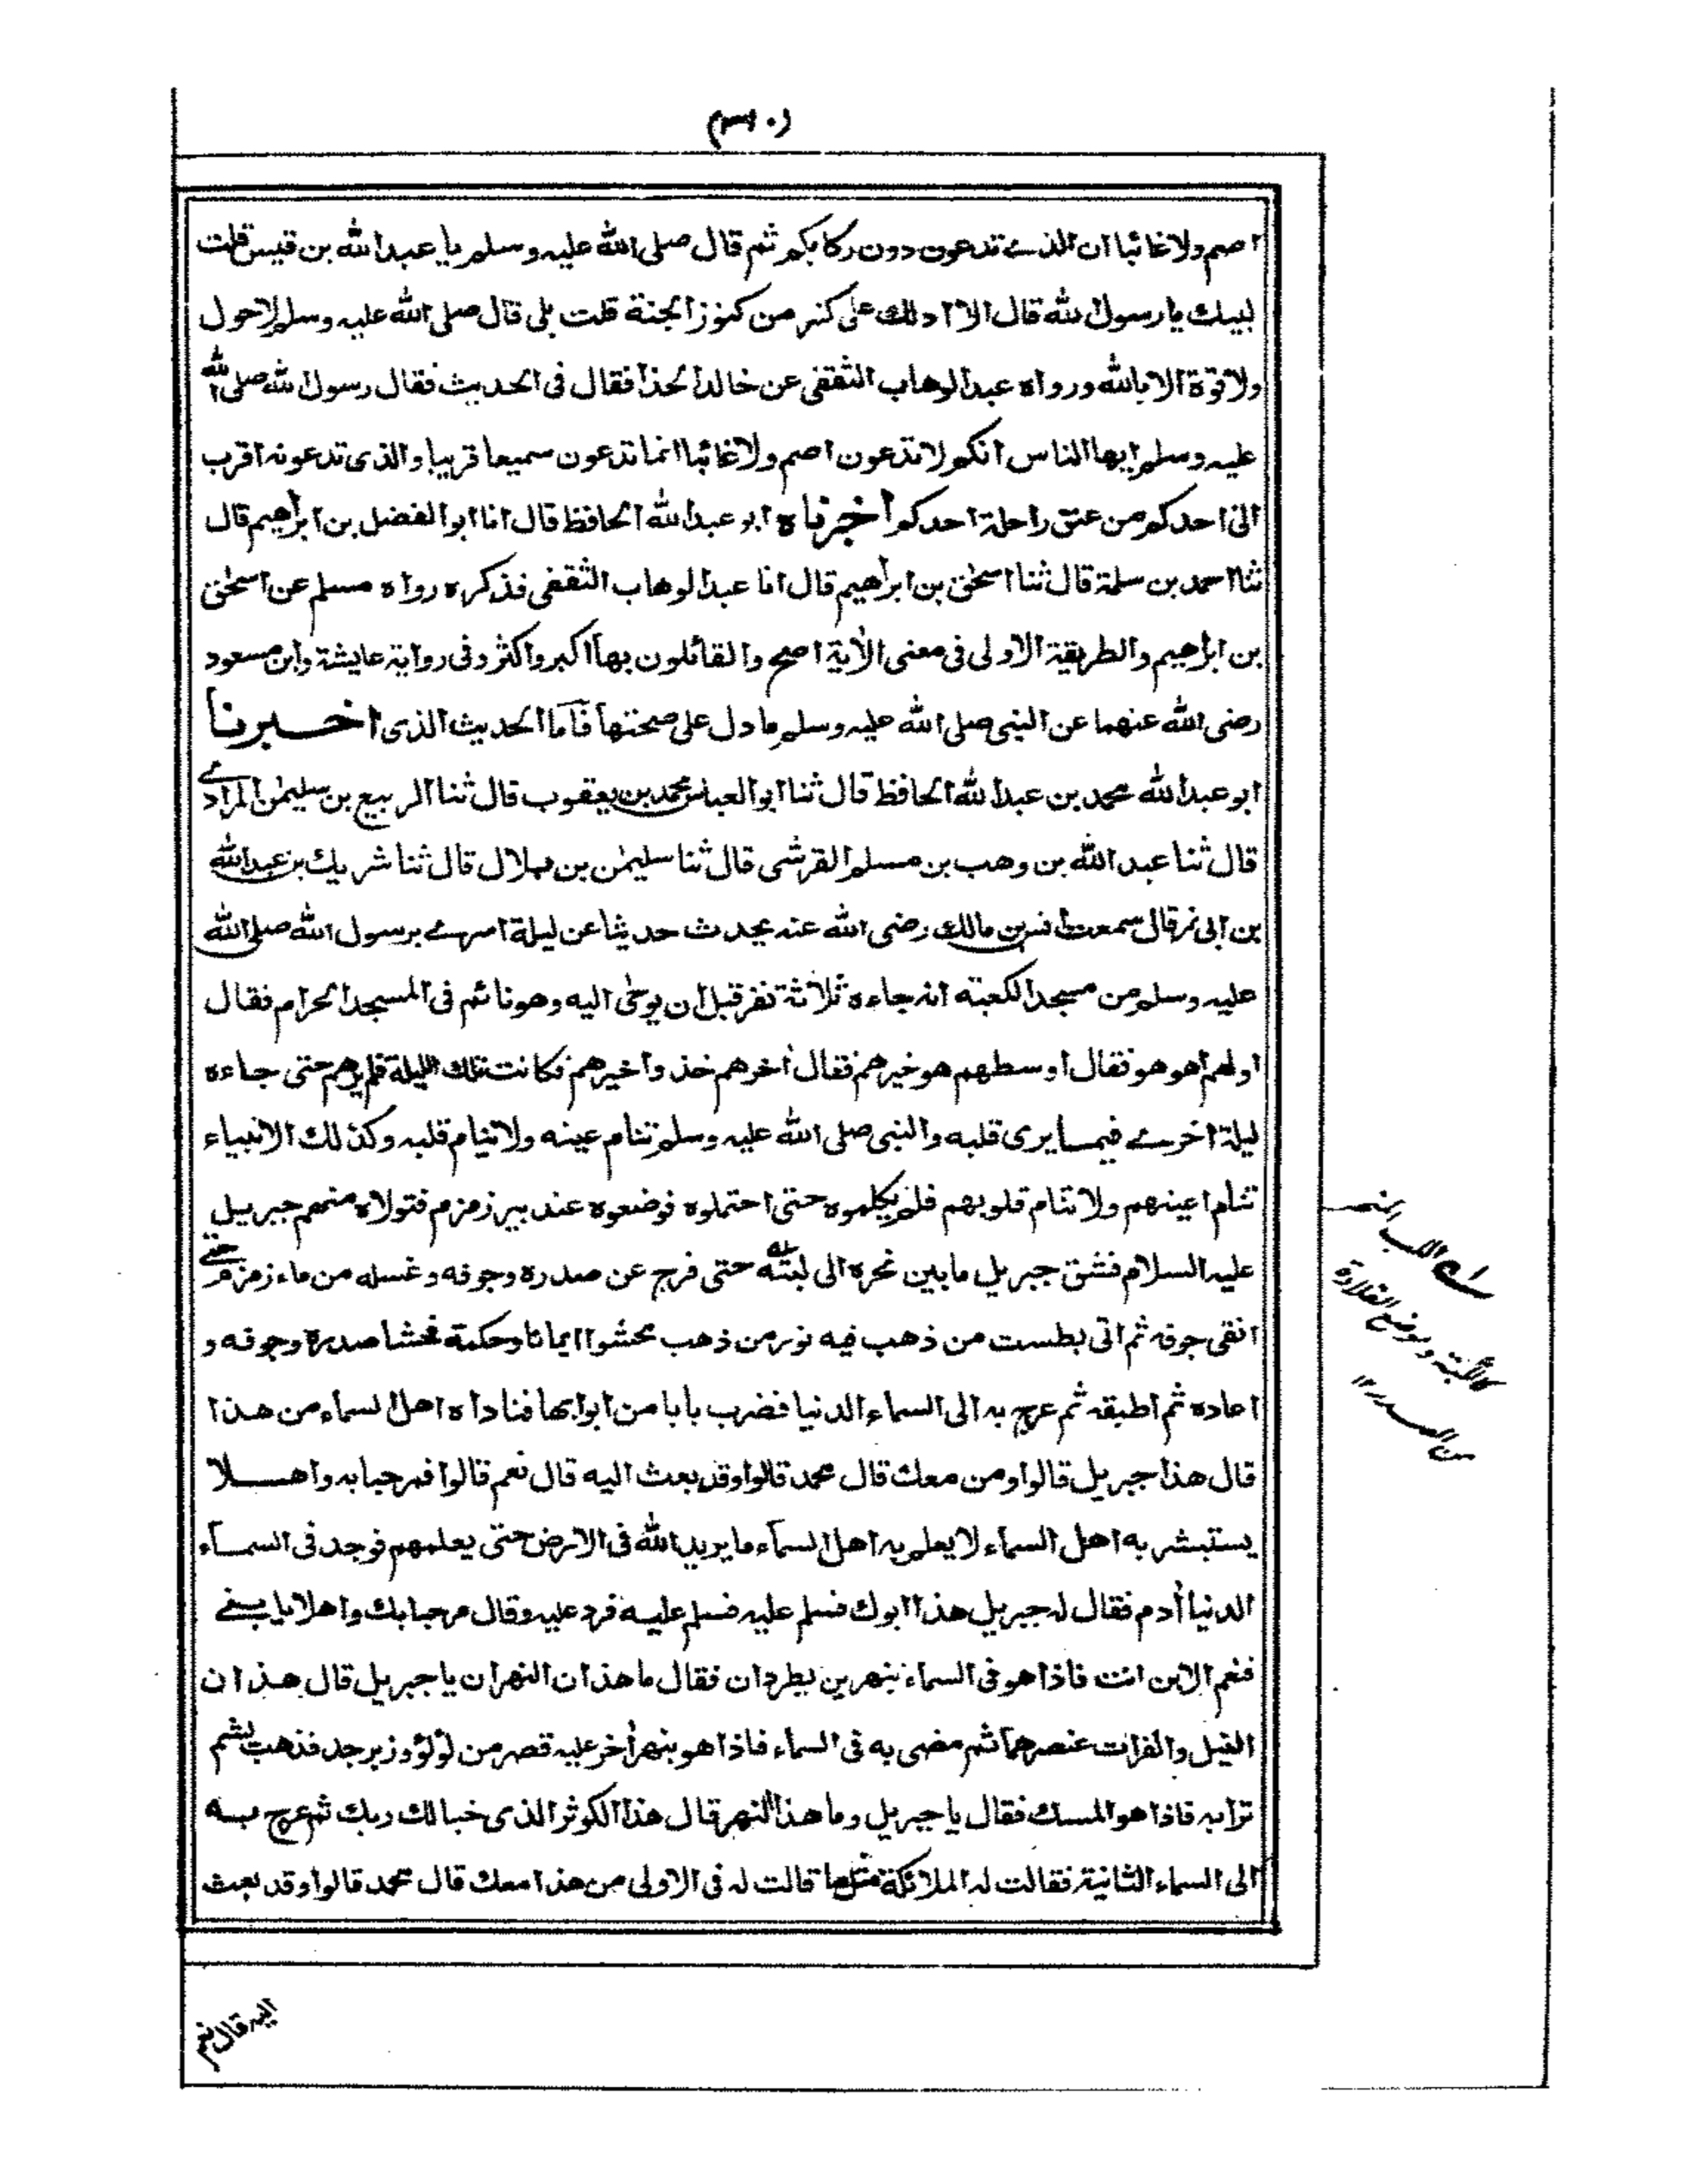 (٣١٠)
اصم ولا غائبا ان الذے تدعون دون ركابكم ثم قال صلى الله عليه وسلم يا عبد الله بن قيس قلت
لبيك يا رسول الله قال الا ادلك على كنز من كنوز الجنة قلت بلى قال صلى الله عليه وسلم لا حول
ولا قوة الا بالله ورواه عبد الوهاب الثقفى عن خالد الحذا فقال فى الحديث فقال رسول الله صلى الله
عليه وسلم ايها الناس انكم لا تدعون اصم ولا غائبا انما تدعون سميعا قريبا والذى تدعونه اقرب
الى احدكم من عنق راحلة احدكم أخبرناه ابو عبد الله الحافظ قال انا ابو الفضل بن ابراهيم قال
ثنا احمد بن سلمة قال ثنا اسحٰق بن ابراهيم قال انا عبد الوهاب الثقفى فذكره رواه مسلم عن اسحٰق
بن ابراهيم والطريقة الاولى فى معنى الأية اصح والقائلون بها اكبر واكثر وفى رواية عايشة وابن مسعود
رضى الله عنهما عن النبى صلى الله عليه وسلم ما دل على صحتها فآما الحديث الذى اخــبرنا
ابو عبد الله محمد بن عبد الله الحافظ قال ثنا ابو العباس محمد بن يعقوب قال ثنا الربيع بن سليمٰن المرادے
قال ثنا عبد الله بن وهب بن مسلم القرشى قال ثنا سليمٰن بن بلال قال ثنا شريك بن عبد الله
بن ابى نمر قال سمعت انس بن مالك رضى الله عنه يحدث حديثا عن ليلة اسرے برسول الله صلى الله
عليه وسلم من مسجد الكعبته انه جاءه ثلاثة نفر قبل ان يوحى اليه وهو نائم فى المسجد الحرام فقال
اولهم اهو هو فقال اوسطهم هو خيرهم فقال أخرهم خذ واخيرهم فكانت تلك الليلة فلم يرهم حتى جاءه
ليلة اخرے فيمــا يرى قلبه والنبى صلى الله عليه وسلم تنام عينه ولا تنام قلبه وكذلك الانبياء
تنام اعينهم ولا تنام قلوبهم فلم يكلموه حتى احتملوه فوضعوه عند بير زمزم فتولاه منهم جبريل
عليه السلام فشق جبريل ما بين نحره الى لبته حتى فرج عن صدره وجوفه وغسله من ماء زمزم حتے
انقى جوفه ثم اتى بطست من ذهب فيه نور من ذهب محشوا ايمانا وحكمة فحشا صدره وجوفه و
اعاده ثم اطبقه ثم عرج به الى السماء الدنيا فضرب بابا من ابوابها فناداه اهل السماء من هذا
قال هذا جبريل قالوا ومن معك قال محمد قالوا وقد بعث اليه قال نعم قالوا فمرحبا به واهــلا
يستبشر به اهل السماء لا يعلم به اهل السمآء ما يريد الله فى الارض حتى يعلمهم فوجد فى السمــآء
الدنيا أدم فقال له جبريل هذا ابوك فسلم عليه فسلم عليــه فرد عليه وقال مرحبا بك واهلا يا بنے
فنعم الابن انت فاذا هو فى السماء بنهرين يطردان فقال ما هذان النهران يا جبريل قال هذان
النيل والفرات عنصرهما ثم مضى به فى السماء فاذا هو بنهر أخر عليه قصر من لؤلؤ وزبرجد فذهب يشم
ترابه فاذا هو المسك فقال يا جبريل وما هذا النهر قال هذا الكوثر الذى خبا لك ربك ثم عرج بــه
الى السماء الثانية فقالت له الملائكة مثل ما قالت له فى الاولى من هذا معك قال محمد قالوا وقد بعث
اللب
كاللبة وموضع القلادة
من الصدر ١٢
اليه قال نعم